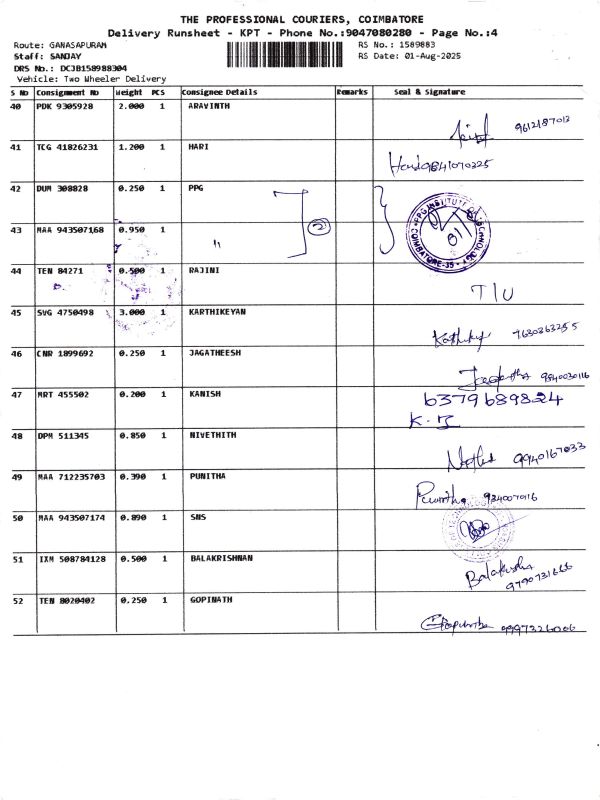 THE PROFESSIONAL COURIERS, COIMBATORE
Delivery Runsheet - KPT - Phone No.:9047080280 - Page No.:4
Route: GANASAPURAM RS No.: 1589883
Staff: SANJAY RS Date: 01-Aug-2025
DRS No.: DCJB158988304
Vehicle: Two Wheeler Delivery
S No Consignment No Weight PCS Consignee Details Remarks Seal & Signature
40 PDK 9305928 2.000 1 ARAVINTH
9612187012
41 TCG 41826231 1.200 1 HARI
Hari 9841070225
42 DUM 308828 0.250 1 PPG
2
43 MAA 943507168 0.950 1 "
COIMBATORE-35
44 TEN 84271 0.500 1 RAJINI
T/U
45 SVG 4750498 3.000 1 KARTHIKEYAN
7630363255
46 CNR 1899692 0.250 1 JAGATHEESH
9840030116
47 MRT 455502 0.200 1 KANISH
6379689824
K.
48 DPM 511345 0.850 1 NIVETHITH
9940167033
49 MAA 712235703 0.390 1 PUNITHA
Punitha 924007016
50 MAA 943507174 0.890 1 SNS
51 IXM 508784128 0.500 1 BALAKRISHNAN
Balakrisha
9790731666
52 TEN 8020402 0.250 1 GOPINATH
0997326006